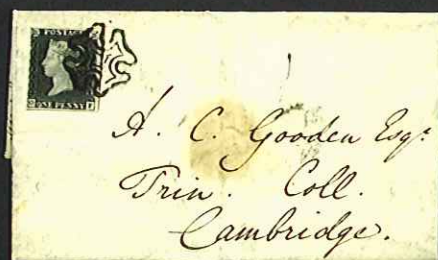 POSTAGE
ONE PENNY
A. C. Gooden Esqr.
Trin. Coll.
Cambridge.